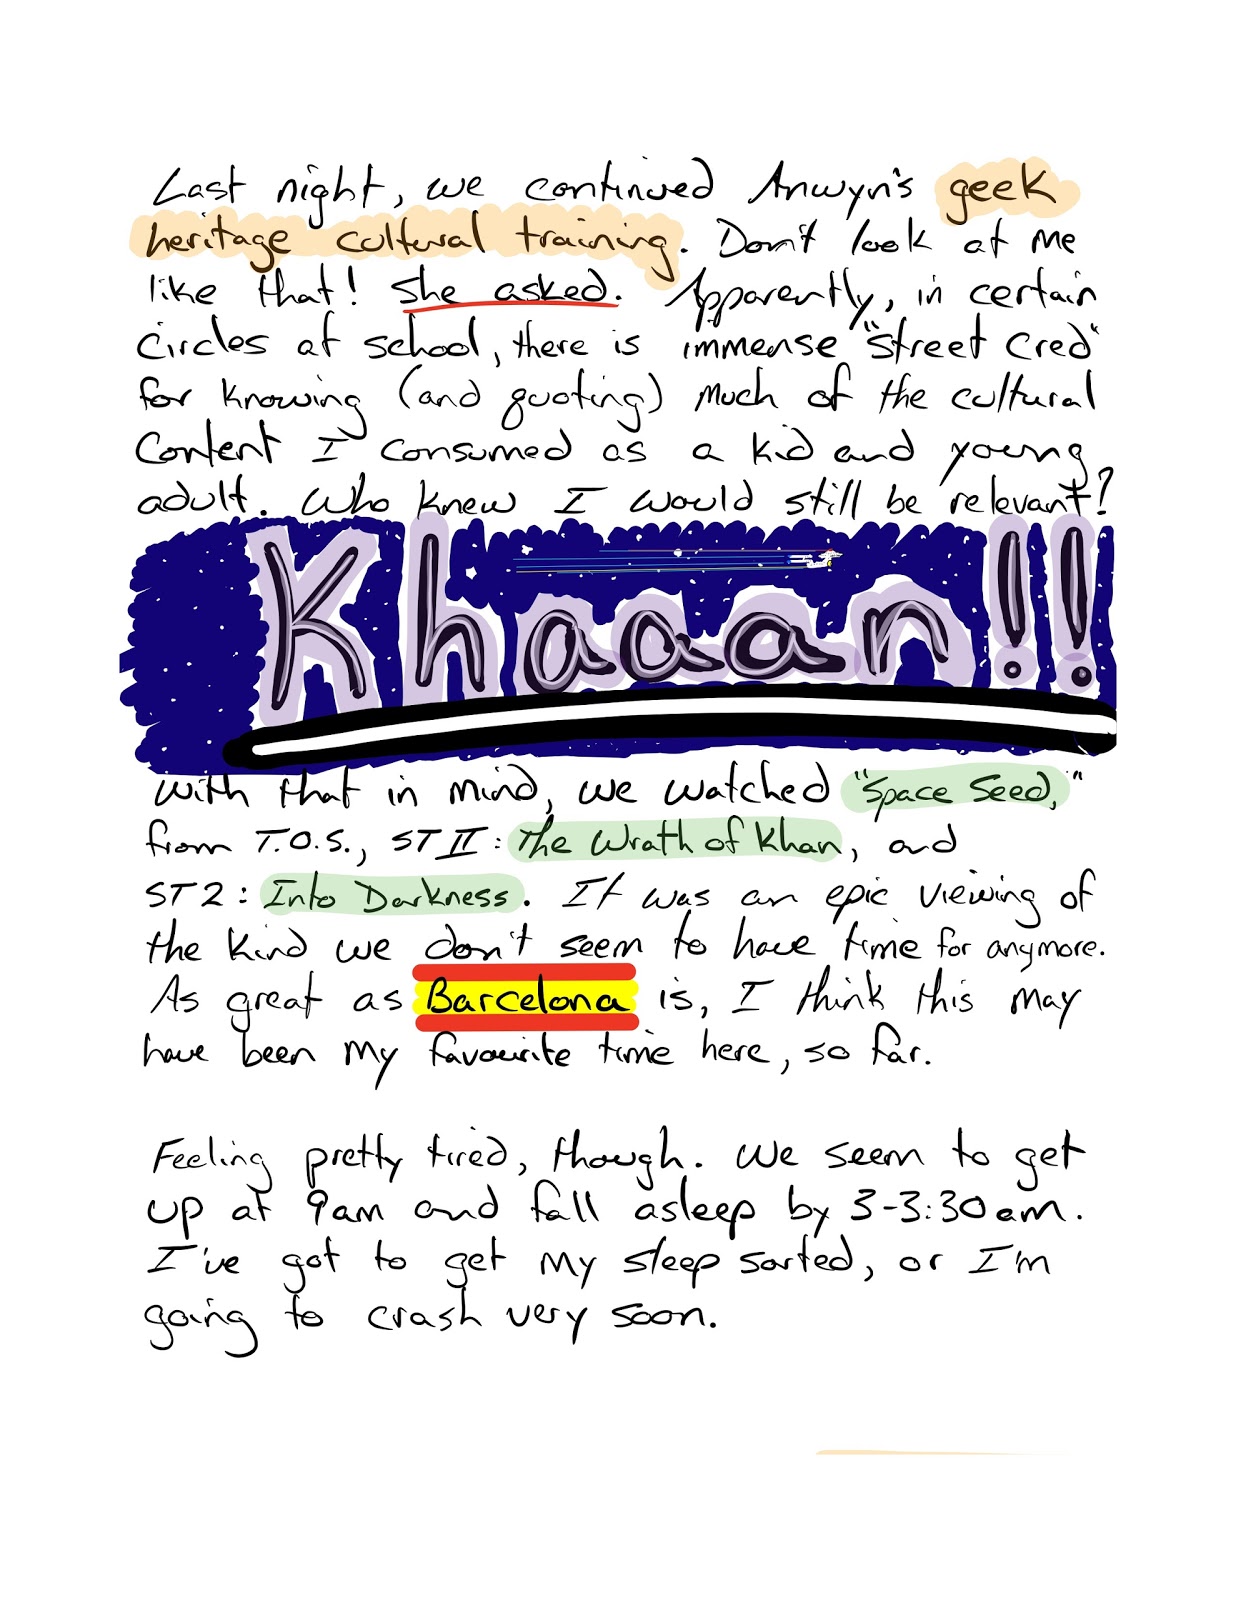 Last night, we continued Anwyn's geek
heritage cultural training. Don't look at me
like that! She asked. Apparently, in certain
circles at school, there is immense "street cred"
for knowing (and quoting) much of the cultural
content I consumed as a kid and young
adult. Who knew I would still be relevant?
Khaaan!!
With that in mind, we watched "Space Seed,"
from T.O.S., ST II: The Wrath of Khan, and
ST2: Into Darkness. It was an epic viewing of
the kind we don't seem to have time for anymore.
As great as Barcelona is, I think this may
have been my favourite time here, so far.
Feeling pretty tired, though. We seem to get
up at 9am and fall asleep by 3-3:30am.
I've got to get my sleep sorted, or I'm
going to crash very soon.